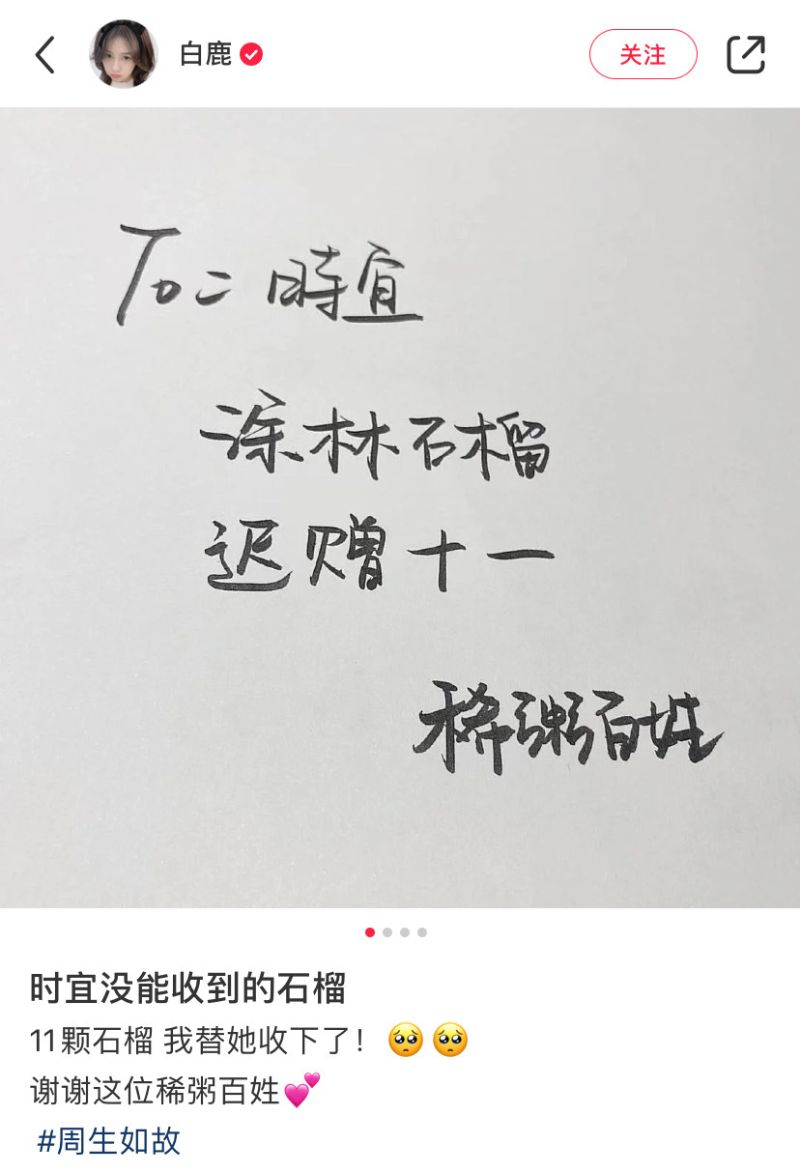 白鹿
关注
To：時宜
涂林石榴
迟赠十一
稀粥百姓
时宜没能收到的石榴
11颗石榴 我替她收下了！🥺🥺
谢谢这位稀粥百姓💕
#周生如故